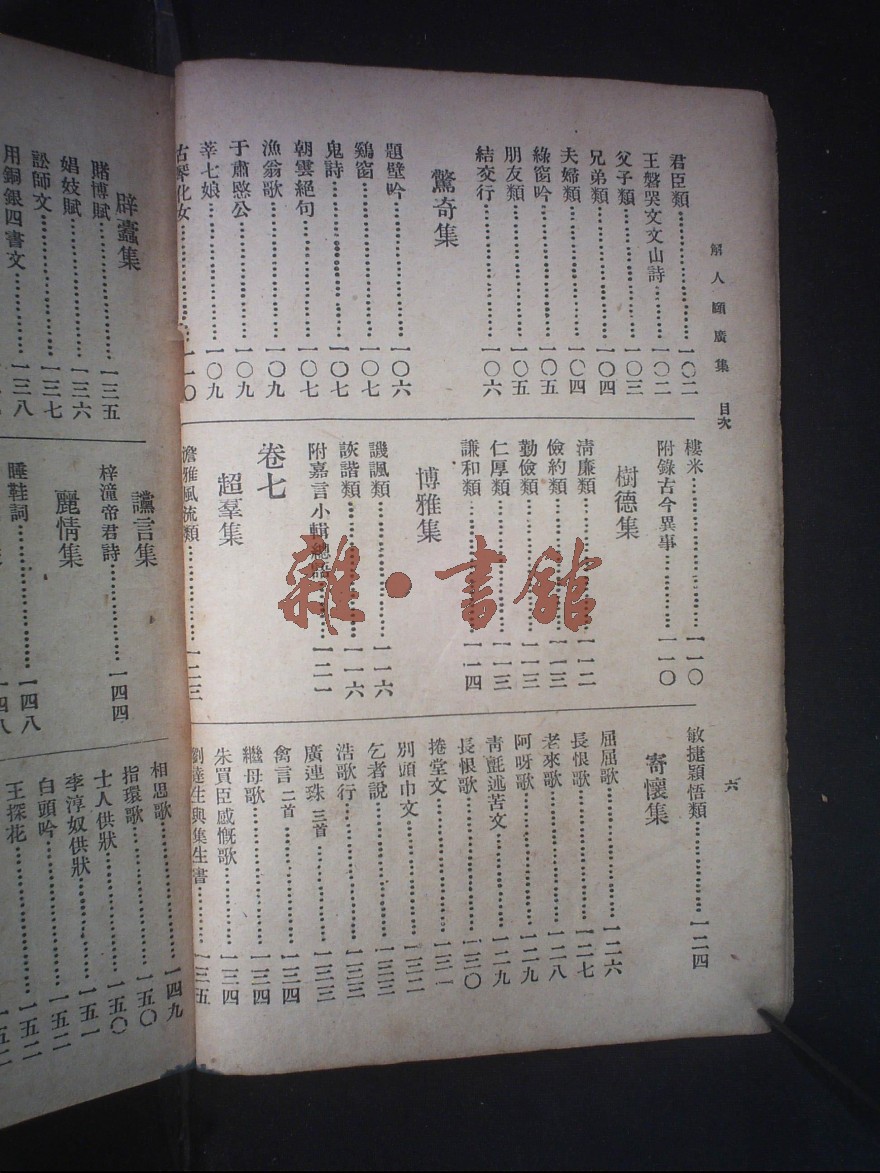 解人頤廣集 目次
六
君臣類…一〇二
王磐哭文文山詩…一〇二
父子類…一〇三
兄弟類…一〇四
夫婦類…一〇四
綠窗吟…一〇五
朋友類…一〇五
結交行…一〇六
驚奇集
題壁吟…一〇六
鷄窗…一〇七
鬼詩…一〇七
朝雲絕句…一〇七
漁翁歌…一〇九
于肅愍公…一〇九
莘七娘…一〇九
古琴化女…一一〇
樓米…一一〇
附錄古今異事…一一〇
樹德集
淸廉類…一一二
儉約類…一一三
勤儉類…一一三
仁厚類…一一三
謙和類…一一四
博雅集
譏諷類…一一六
詼諧類…一一六
附嘉言小輯總…一二一
卷七
超羣集
澹雅風流類…一二三
敏捷穎悟類…一二四
寄懷集
屈屈歌…一二六
長恨歌…一二七
老來歌…一二八
阿呀歌…一二九
靑氈述苦文…一二九
長恨歌…一三〇
捲堂文…一三一
別頭巾文…一三二
乞者說…一三三
浩歌行…一三三
廣連珠 三首…一三三
禽言 二首…一三四
繼母歌…一三四
朱買臣感慨歌…一三四
劉達生與集生書…一三五
辟蠹集
賭博賦…一三五
娼妓賦…一三六
訟師文…一三七
用銅銀四書文…一三八
讜言集
梓潼帝君詩…一四四
麗情集
睡鞋詞…一四八
一四八
相思歌…一四九
指環歌…一五〇
士人供狀…一五〇
李淳奴供狀…一五一
白頭吟…一五二
王探花…一五二
雜·書館